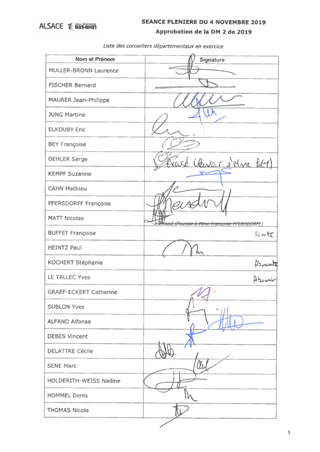 ALSACE BAS-RHIN
SEANCE PLENIERE DU 4 NOVEMBRE 2019
Approbation de la DM 2 de 2019
Liste des conseillers départementaux en exercice
Nom et Prénom Signature
MULLER-BRONN Laurence
FISCHER Bernard
MAURER Jean-Philippe
JUNG Martine
ELKOUBY Eric
BEY Françoise
OEHLER Serge Excusé (Pouvoir à Mme BEY)
KEMPF Suzanne
CAHN Mathieu
PFERSDORFF Françoise
MATT Nicolas Excusé (Pouvoir à Mme Françoise PFERSDORFF)
BUFFET Françoise
HEINTZ Paul
KOCHERT Stéphanie Absente
LE TALLEC Yves Absent
GRAEF-ECKERT Catherine
SUBLON Yves
ALFANO Alfonsa
DEBES Vincent
DELATTRE Cécile
SENE Marc
HOLDERITH-WEISS Nadine
HOMMEL Denis
THOMAS Nicole
1